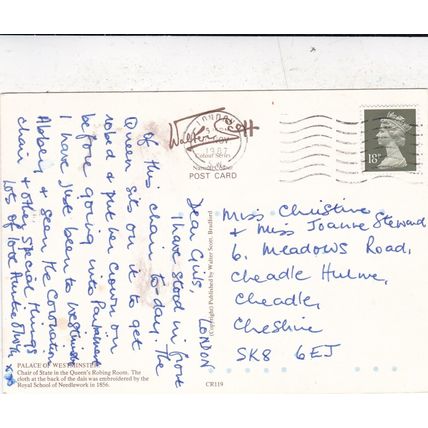 LONDON
Dear Girls,
I have stood in front
of this chair to-day. The
Queen sits on it to get
robed & put her crown on
before going into Parliament
I have just been to Westminster
Abbey & seen the Coronation
chair & other special things
Lots of love Auntie
Walter Scott
1987
Colour Series
POST CARD
(Copyright) Published by Walter Scott, Bradford
18P
Miss Christine
& Miss Joanne Steward
6. Meadows Road,
Cheadle Hulme,
Cheadle,
Cheshire
SK8 6EJ
PALACE OF WESTMINSTER
Chair of State in the Queen's Robing Room. The
cloth at the back of the dais was embroidered by the
Royal School of Needlework in 1856.
CR119